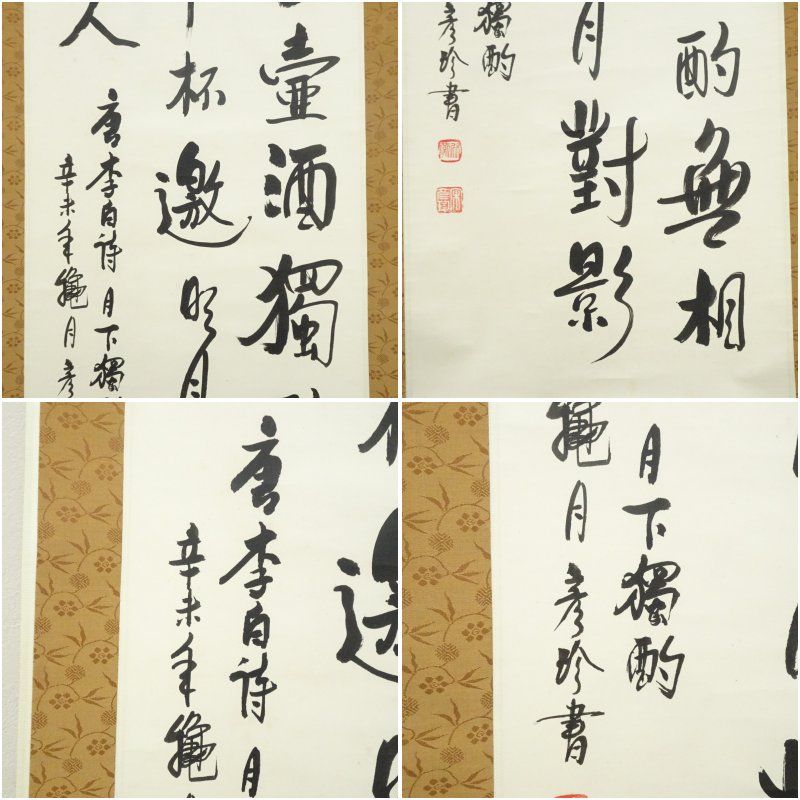 壺酒獨
杯邀明月
人
唐李白詩月下獨
辛未年穐月彥
酌無相
月對影
獨酌
彥珍書
邀
唐李白詩月
辛未年穐
月下獨酌
穐月彥珍書